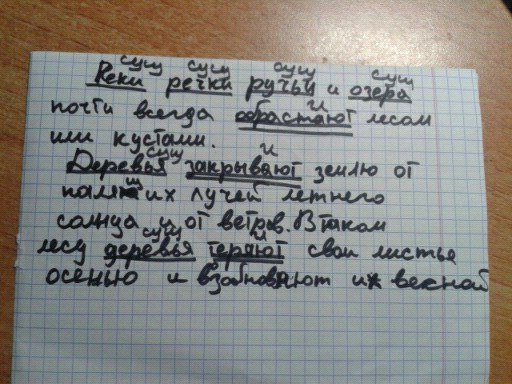 сущ сущ сущ сущ
Реки речки ручьи и озера
и
почти всегда обрастают лесом
или кустами.
сущ и
Деревья закрывают землю от
палящих лучей летнего
солнца и от ветров. В таком
сущ
лесу деревья теряют свои листье
осенью и взобновяют их весной